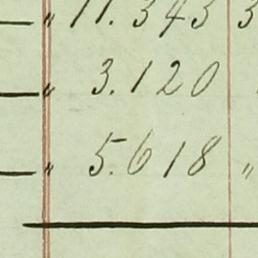 — „ 11.343 3
— „ 3.120
— „ 5.618 „